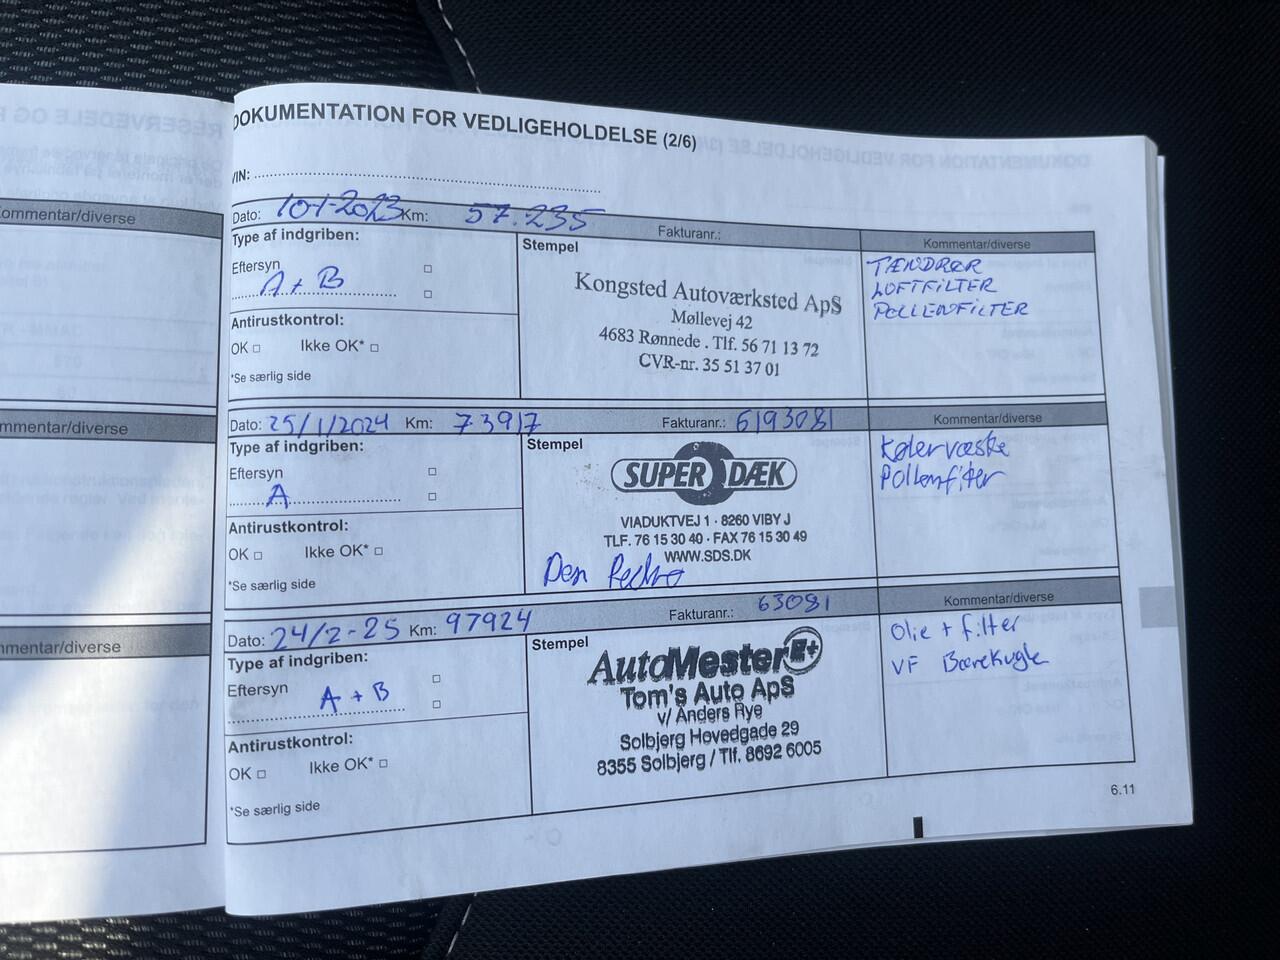 DOKUMENTATION FOR VEDLIGEHOLDELSE (2/6)
VIN:
Dato: 10-1-2023 Km: 57.235 Fakturanr.:
Type af indgriben:
Eftersyn
A + B
Antirustkontrol:
OK Ikke OK*
*Se særlig side
Stempel
Kongsted Autoværksted ApS
Møllevej 42
4683 Rønnede . Tlf. 56 71 13 72
CVR-nr. 35 51 37 01
Kommentar/diverse
TÆNDRØR
LUFTFILTER
POLLENFILTER
Dato: 25/1/2024 Km: 73917 Fakturanr.: 6193081
Type af indgriben:
Eftersyn
A
Antirustkontrol:
OK Ikke OK*
*Se særlig side
Stempel
SUPER DÆK
VIADUKTVEJ 1 · 8260 VIBY J
TLF. 76 15 30 40 · FAX 76 15 30 49
WWW.SDS.DK
Kommentar/diverse
Kølervæske
Pollenfilter
Dato: 24/2-25 Km: 97924 Fakturanr.: 63081
Type af indgriben:
Eftersyn
A + B
Antirustkontrol:
OK Ikke OK*
*Se særlig side
Stempel
AutoMester E+
Tom's Auto ApS
v/ Anders Rye
Solbjerg Hovedgade 29
8355 Solbjerg / Tlf. 8692 6005
Kommentar/diverse
Olie + filter
VF Bærekugle
6.11
Kommentar/diverse
mmentar/diverse
mentar/diverse